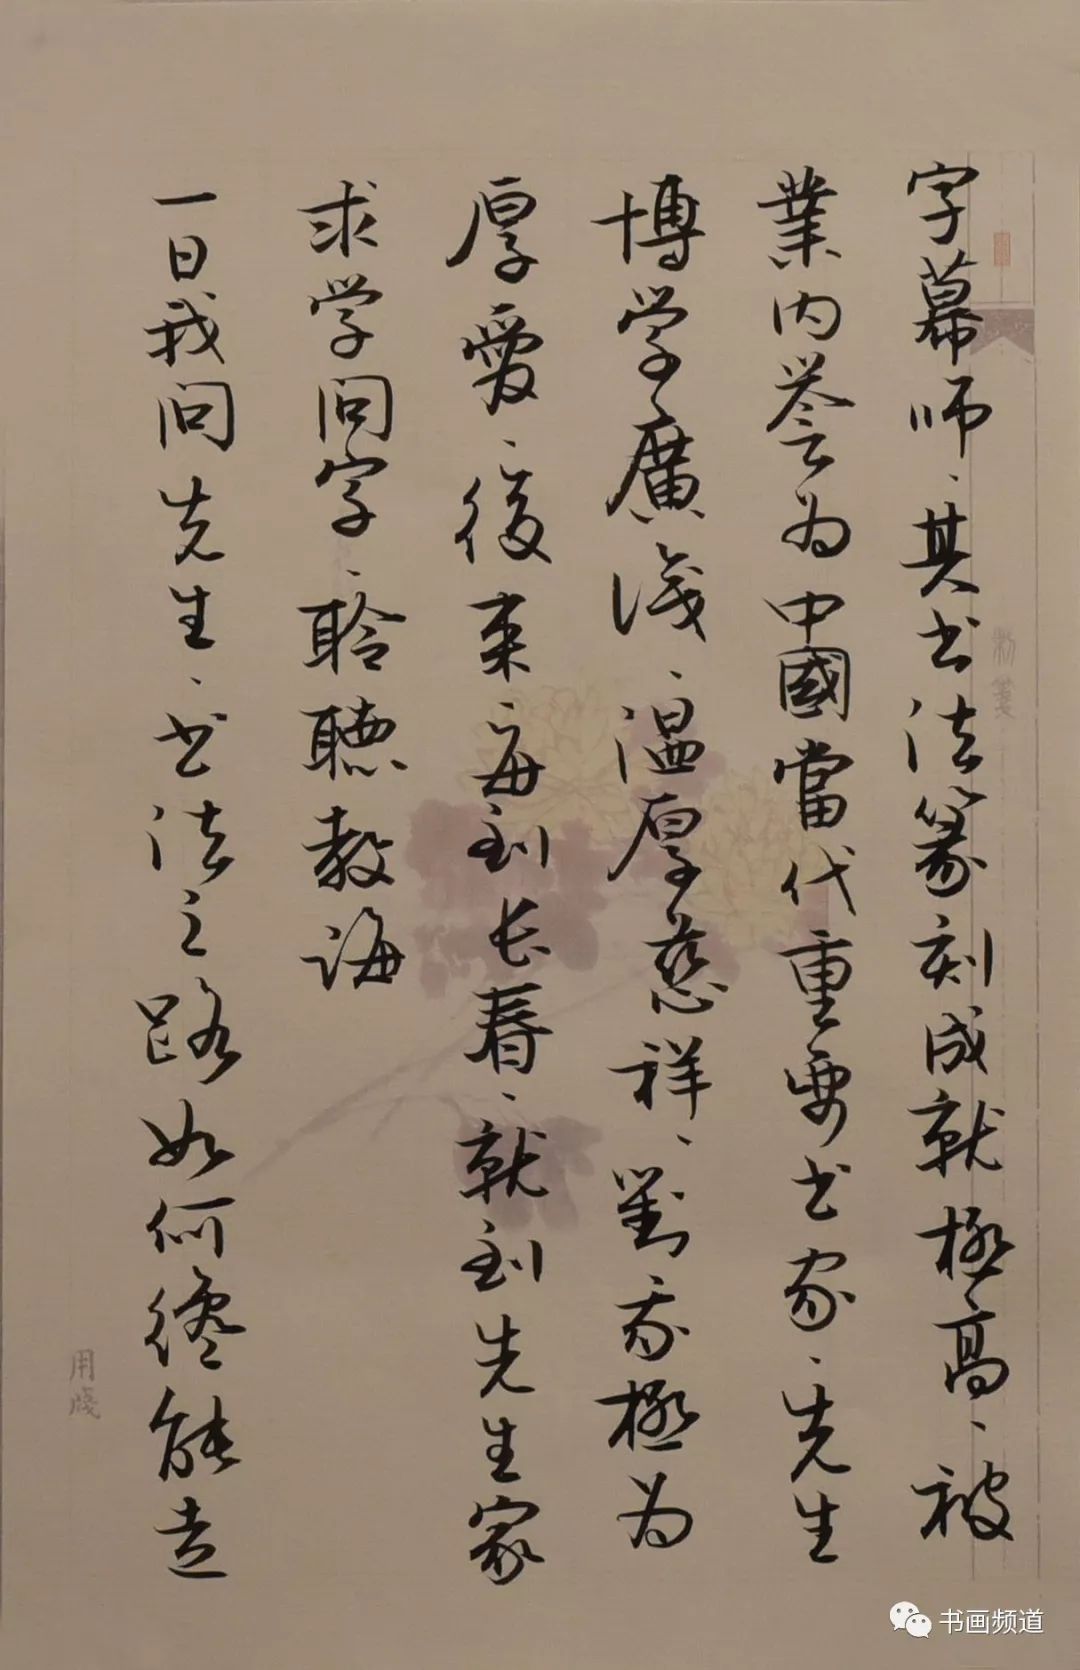 字幕师、其书法篆刻成就極高、被
業内誉为中國當代重要书家、先生
博学廣识、温厚慈祥、對我極为
厚愛、後来、每到长春、就到先生家
求学问字、聆聽教诲
一日我问先生、书法之路如何纔能走
用箋
书画频道